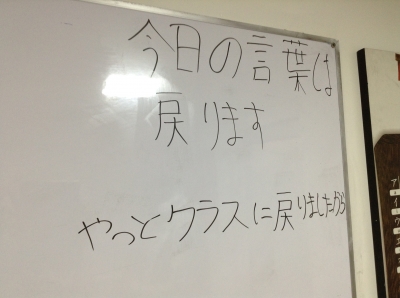 今日の言葉は
戻ります
やっとクラスに戻りましたから